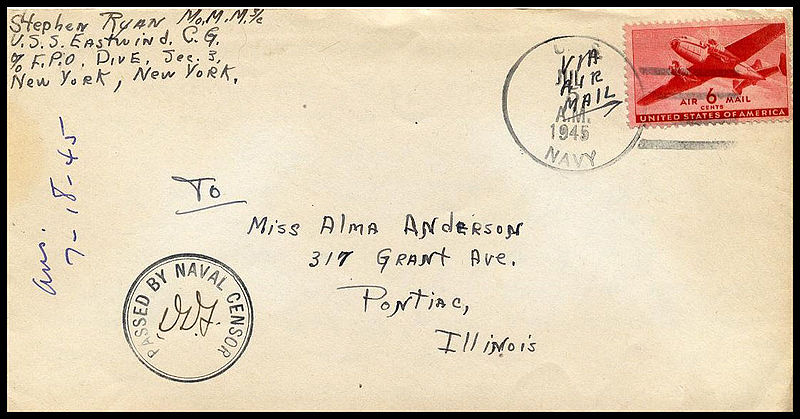 Stephen Ryan Mo.M.M.3/c
U.S.S. Eastwind. C.G.
% F.P.O. Div E, Sec. 3,
New York, New York.
U. S.
JUL
5
A.M.
1945
NAVY
VIA
AIR
MAIL
AIR 6 MAIL
CENTS
UNITED STATES OF AMERICA
ans.
7-18-45
To
Miss Alma Anderson
317 Grant Ave.
Pontiac,
Illinois
PASSED BY NAVAL CENSOR